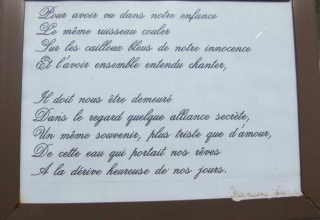 Pour avoir vu dans notre enfance
Le même ruisseau couler
Sur les cailloux bleus de notre innocence
Et l'avoir ensemble entendu chanter,
Il doit nous être demeuré
Dans le regard quelque alliance secrète,
Un même souvenir, plus triste que d'amour,
De cette eau qui portait nos rêves
A la dérive heureuse de nos jours.